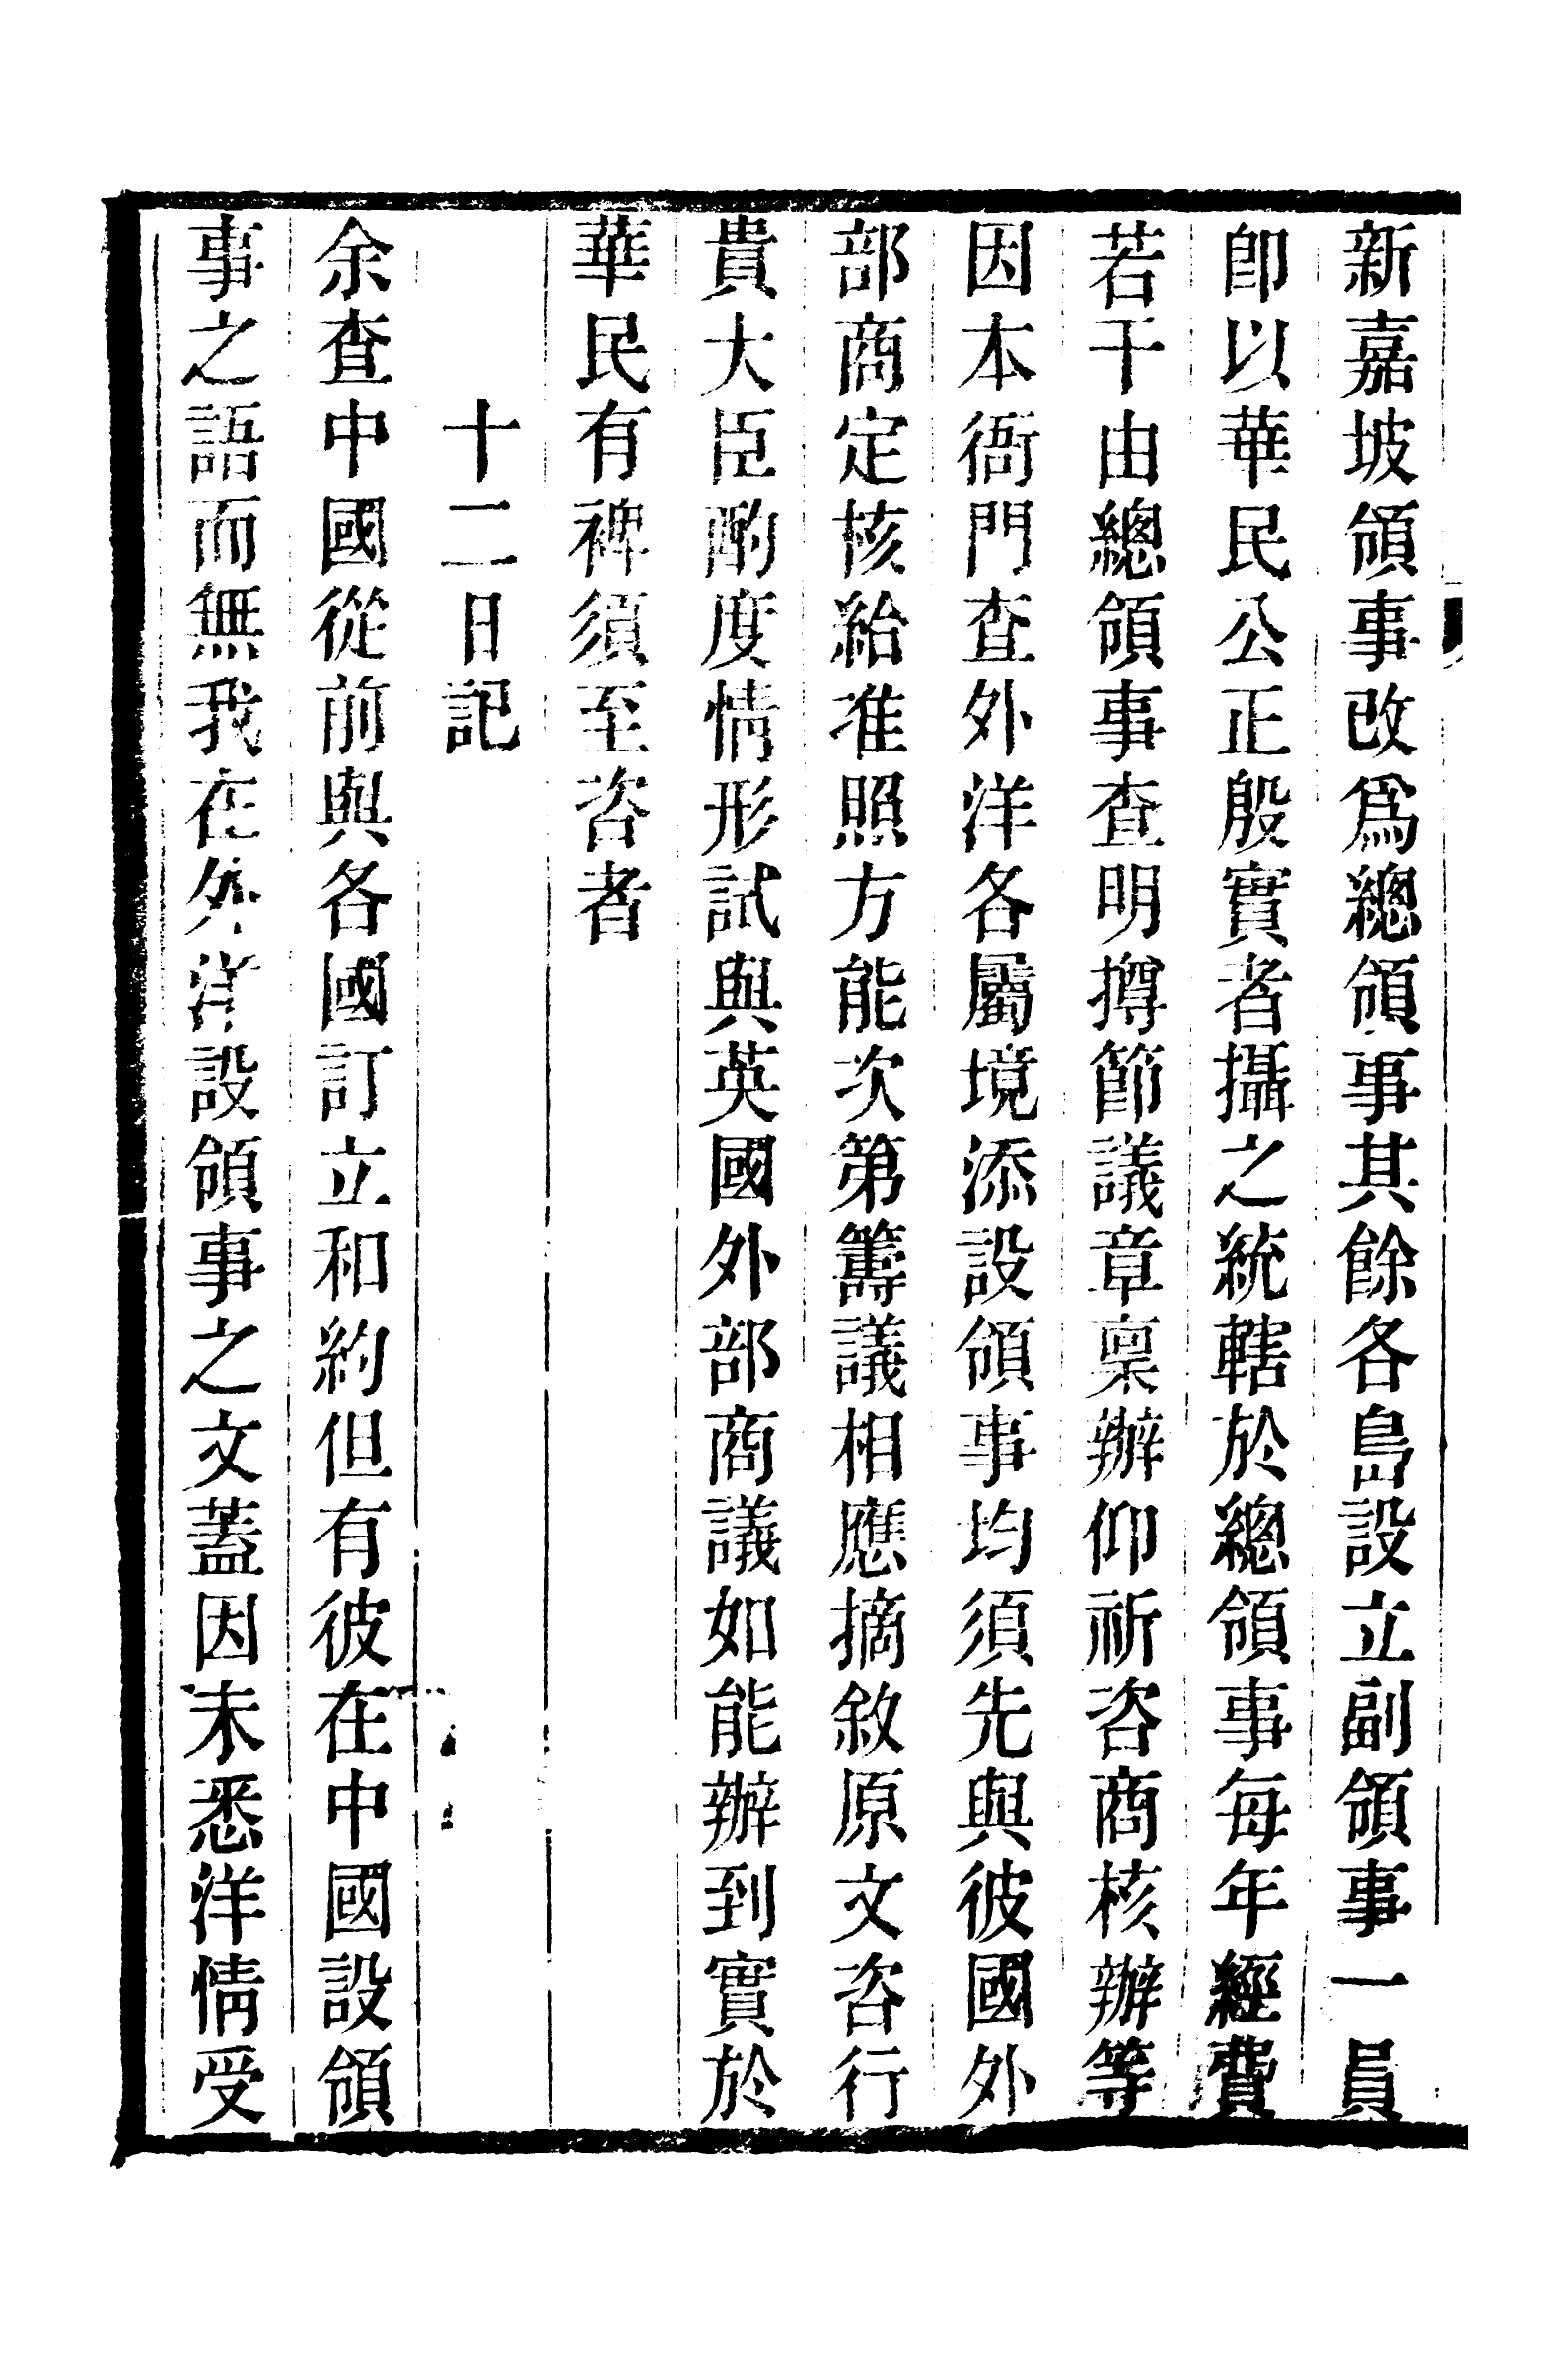 新嘉坡領事改爲總領事其餘各島設立副領事一員
卽以華民公正殷實者攝之統轄於總領事每年經費
若干由總領事查明撙節議章稟辦仰祈咨商核辦等
因本衙門查外洋各屬境添設領事均須先與彼國外
部商定核給准照方能次第籌議相應摘敘原文咨行
貴大臣酌度情形試與英國外部商議如能辦到實於
華民有裨須至咨者
十二日記
余查中國從前與各國訂立和約但有彼在中國設領
事之語而無我在外洋設領事之文蓋因未悉洋情受